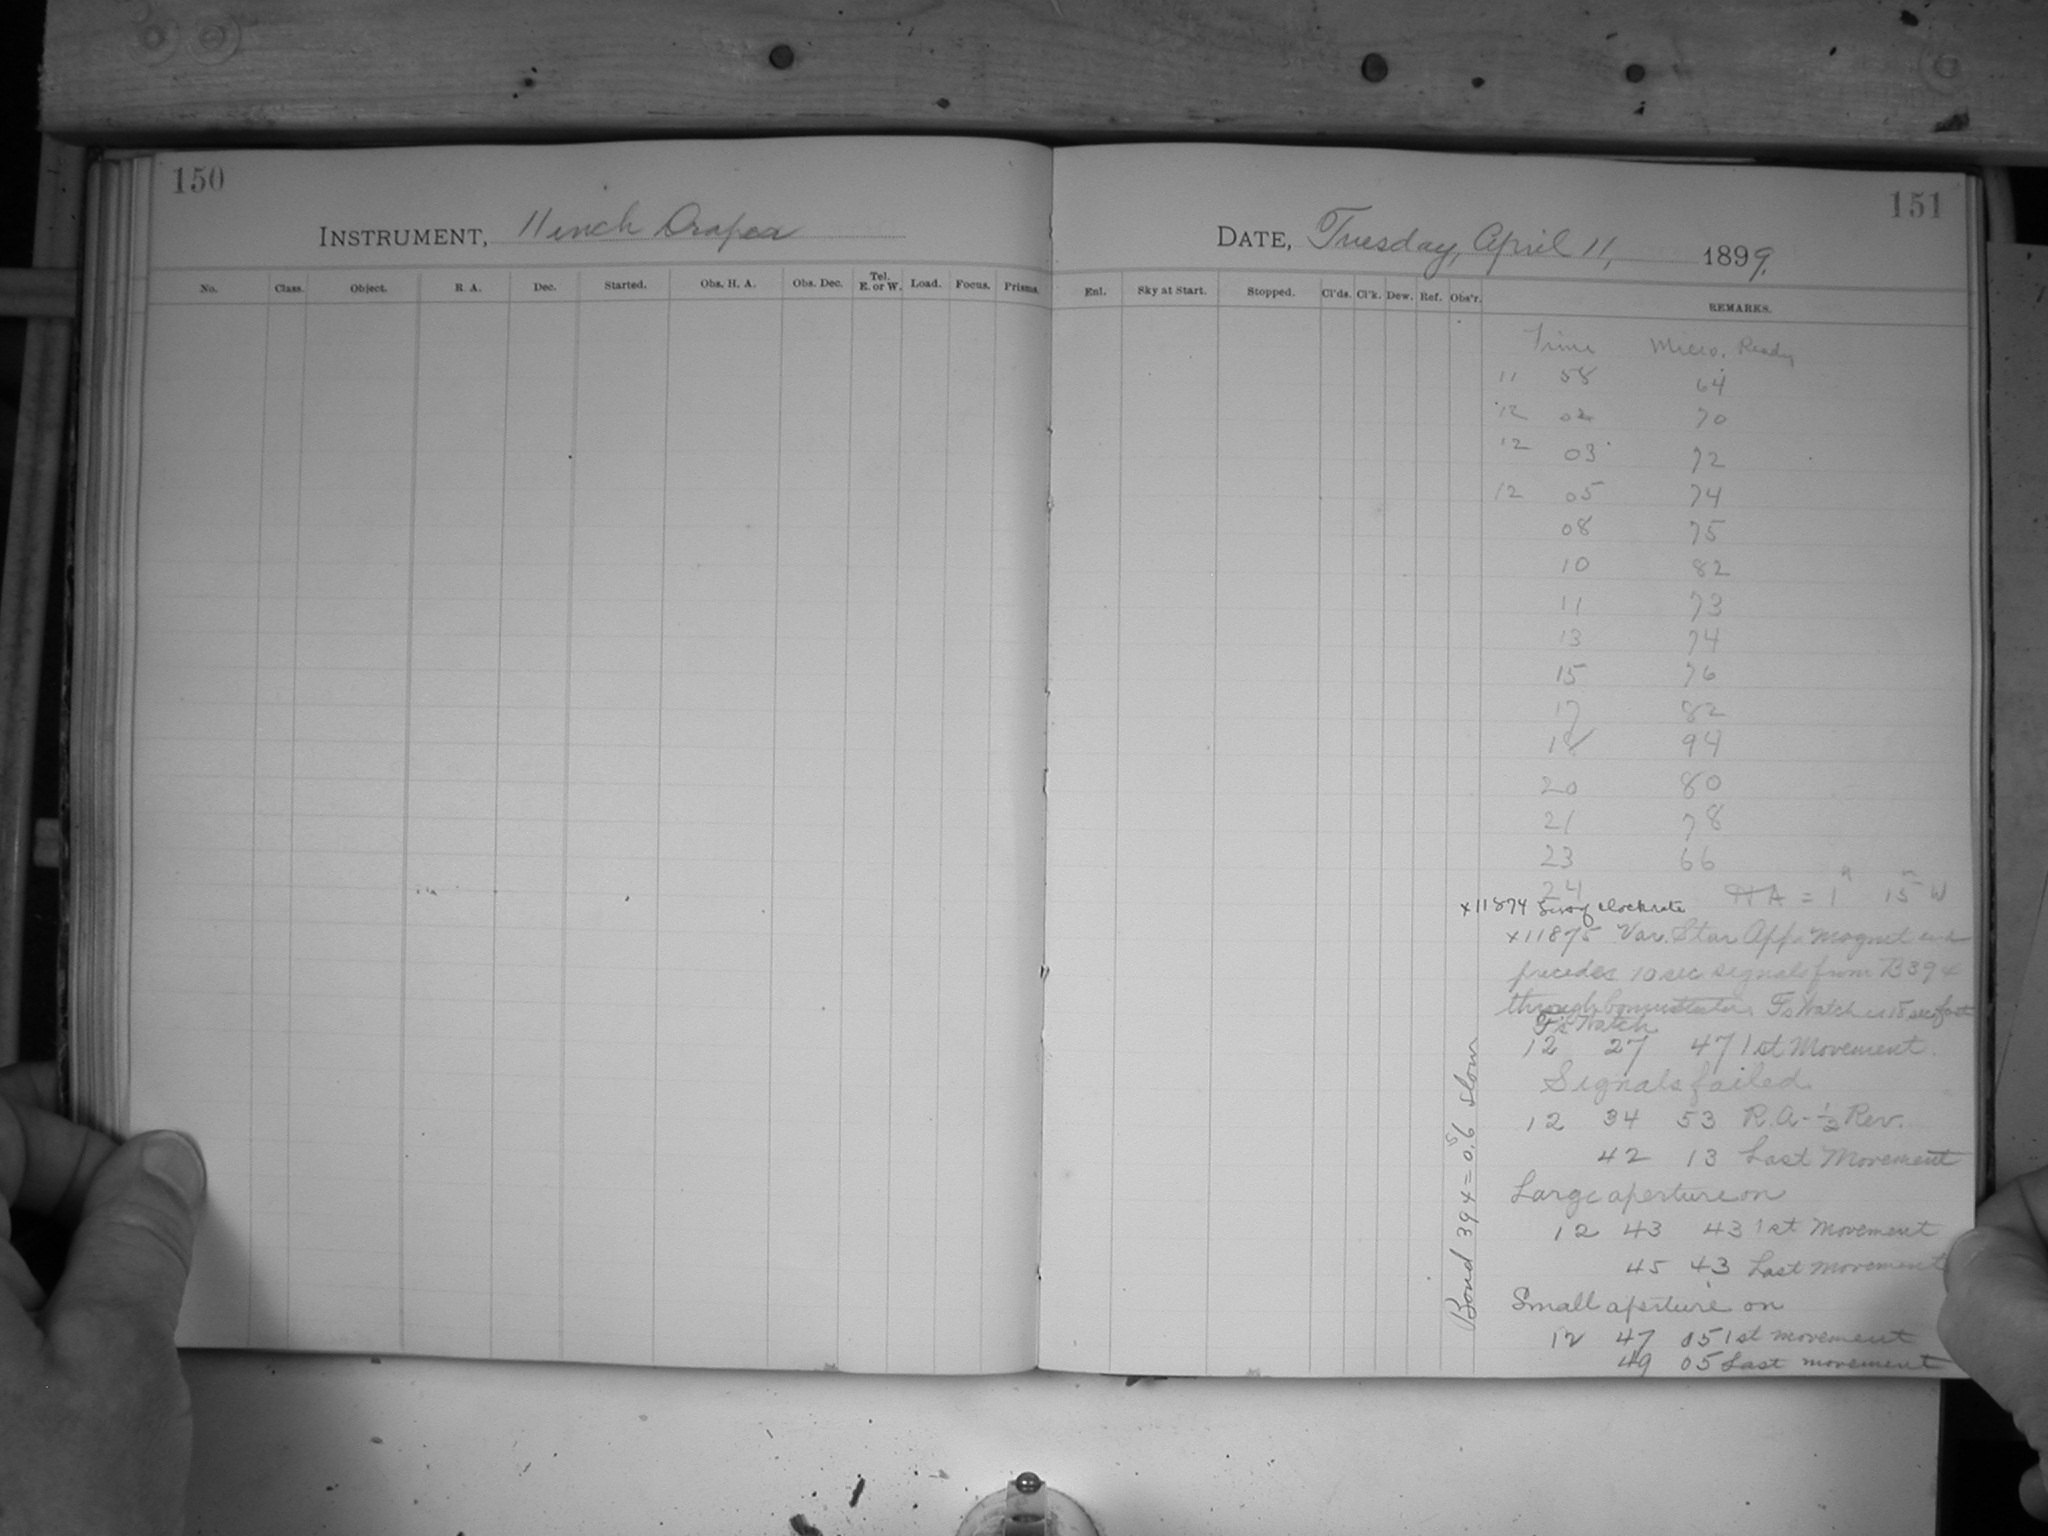 150
INSTRUMENT, 11 inch Draper
No. Class. Object. R. A. Dec. Started. Obs. H. A. Obs. Dec. Tel. E. or W. Load. Focus. Prisms.
151
DATE, Tuesday, April 11, 1899.
Enl. Sky at Start. Stopped. Cl'ds. Cl'k. Dew. Ref. Obs'r. REMARKS.
Time Micro. Ready
11 58 64
12 02 70
12 03 72
12 05 74
08 75
10 82
11 73
13 74
15 76
17 82
18 94
20 80
21 78
23 66
24 HA = 1h 15m W
x11874 clockrate
x11875 Var. Star App. Magnet
precedes 10 sec signals from B394
through F's Watch is 18 sec fast
F's Watch
12 27 47 1st Movement.
Signals failed.
12 34 53 R.A - 1/2 Rev.
42 13 Last Movement
Large aperture on
12 43 43 1st Movement
45 43 Last Movement
Small aperture on
12 47 05 1st movement
49 05 Last movement
Bond 394 = 0s.6 slow